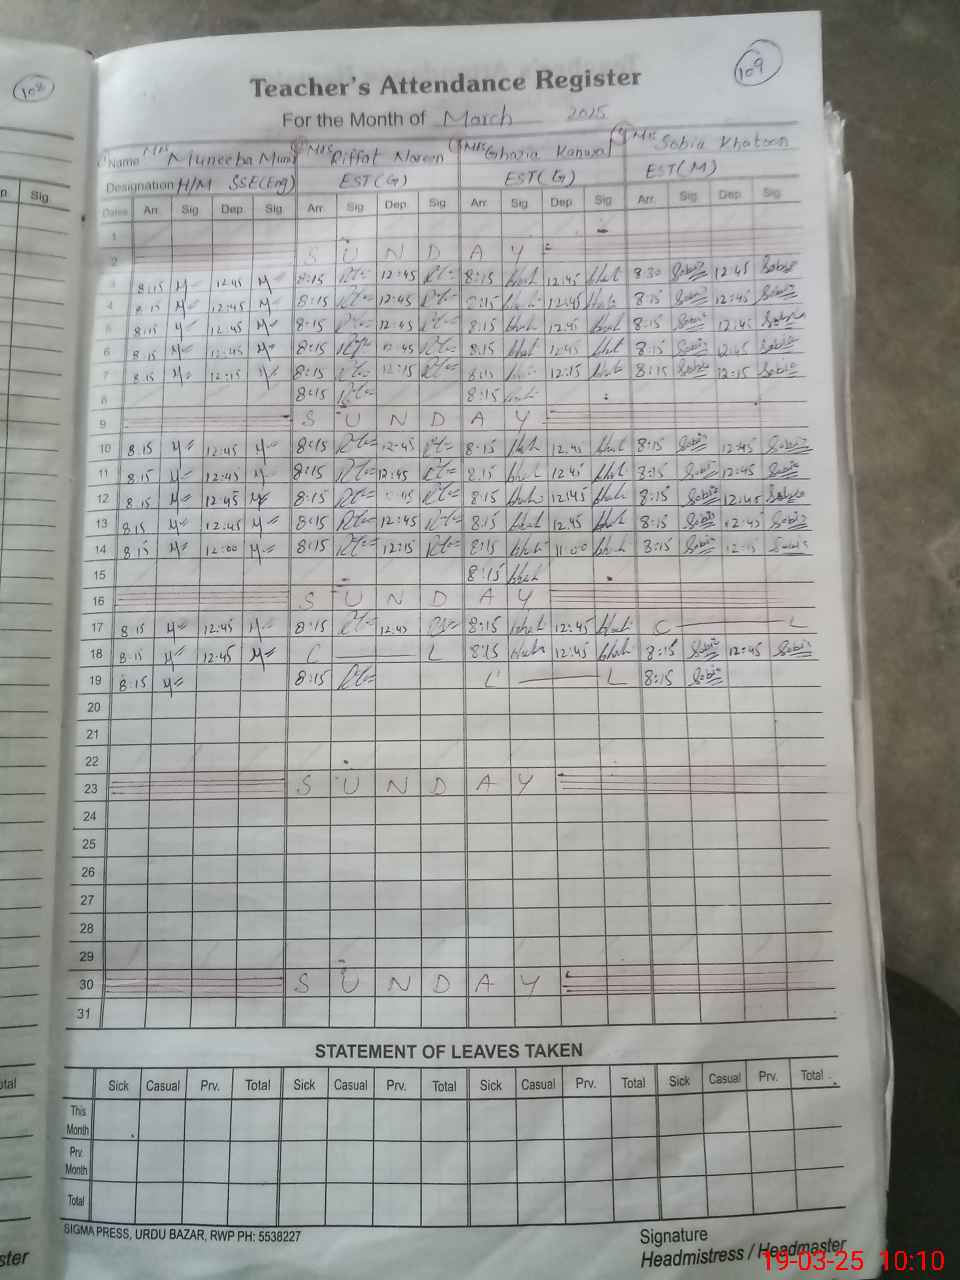 108
Sig
109
Teacher's Attendance Register
For the Month of March 2025
Name Mrs Muneeba Mrs Riffat Nareen Mrs Ghazia Kanwal Mrs Sobia Khatoon
Designation H/M SSE(Eng) EST(G) EST(G) EST(M)
Dates Arr. Sig Dep. Sig Arr. Sig Dep. Sig Arr. Sig Dep. Sig Arr. Sig Dep. Sig
1
2 SUNDAY
3 8:15 12:45 8:15 12:45 8:15 12:45 8:30 Sobia 12:45 Sobia
4 8:15 12:45 8:15 12:45 8:15 12:45 8:15 Sobia 12:45 Sobia
5 8:15 12:45 8:15 12:45 8:15 12:45 8:15 Sobia 12:45 Sobia
6 8:15 12:45 8:15 12:45 8:15 12:45 8:15 Sobia 12:45 Sobia
7 8:15 12:15 8:15 12:15 8:15 12:15 8:15 Sobia 12:15 Sobia
8 8:15 8:15
9 SUNDAY
10 8:15 12:45 8:15 12:45 8:15 12:45 8:15 Sobia 12:45 Sobia
11 8:15 12:45 8:15 12:45 8:15 12:45 8:15 Sobia 12:45 Sobia
12 8:15 12:45 8:15 8:15 12:45 8:15 Sobia 12:45 Sobia
13 8:15 12:45 8:15 12:45 8:15 12:45 8:15 Sobia 12:45 Sobia
14 8:15 12:00 8:15 12:15 8:15 11:00 8:15 Sobia 12:15 Sobia
15 8:15
16 SUNDAY
17 8:15 12:45 8:15 12:45 8:15 12:45 C L
18 8:15 12:45 C L 8:15 12:45 8:15 Sobia 12:45 Sobia
19 8:15 8:15 L L 8:15 Sobia
20
21
22
23 SUNDAY
24
25
26
27
28
29
30 SUNDAY
31
STATEMENT OF LEAVES TAKEN
Sick Casual Prv. Total Sick Casual Prv. Total Sick Casual Prv. Total Sick Casual Prv. Total
This Month
Prv. Month
Total
SIGMA PRESS, URDU BAZAR, RWP PH: 5538227
Signature
Headmistress / Headmaster
19-03-25 10:10